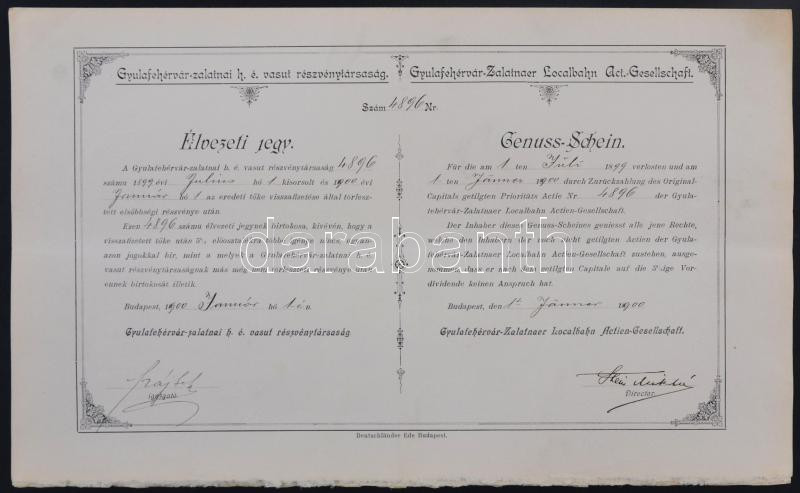 Gyulafehérvár-zalatnai h. é. vasut részvénytársaság.
Gyulafehérvár-Zalatnaer Localbahn Act.-Gesellschaft.
Szám 4896 Nr.
Élvezeti jegy.
A Gyulafehérvár-zalatnai h. é. vasut részvénytársaság 4896
számu 1899 évi Julius hó 1 kisorsolt és 1900 évi
Január hó 1 az eredeti tőke visszafizetése által törlesz-
tett elsőbbségi részvénye után.
Ezen 4896 számu élvezeti jegynek birtokosa, kivévén, hogy a
visszafizetett tőke után 5%, előosztalékra többé igénye nincs, ugyan-
azon jogokkal bir, mint a melyek a Gyulafehérvár-zalatnai h. é.
vasut részvénytársaságnak más még nem törlesztett részvénye után
ennek birtokosát illetik.
Budapest, 1900 Január hó 1 én.
Gyulafehérvár-zalatnai h. é. vasut részvénytársaság
igazgató
Genuss-Schein.
Für die am 1 ten Juli 1899 verlosten und am
1 ten Jänner 1900 durch Zurückzahlung des Original-
Capitals getilgten Prioritäts Actie Nr 4896 der Gyula-
fehérvár-Zalatnaer Localbahn Actien-Gesellschaft.
Der Inhaber dieses Genuss-Scheines geniesst alle jene Rechte,
welche den Inhabern der noch nicht getilgten Actien der Gyula-
fehérvár-Zalatnaer Localbahn Actien-Gesellschaft zustehen, ausge-
nommen, dass er nach dem getilgten Capitale auf die 5%ige Vor-
dividende keinen Anspruch hat.
Budapest, den 1t Jänner 1900
Gyulafehérvár-Zalatnaer Localbahn Actien-Gesellschaft.
Director.
Deutschländer Ede Budapest.
darabanth